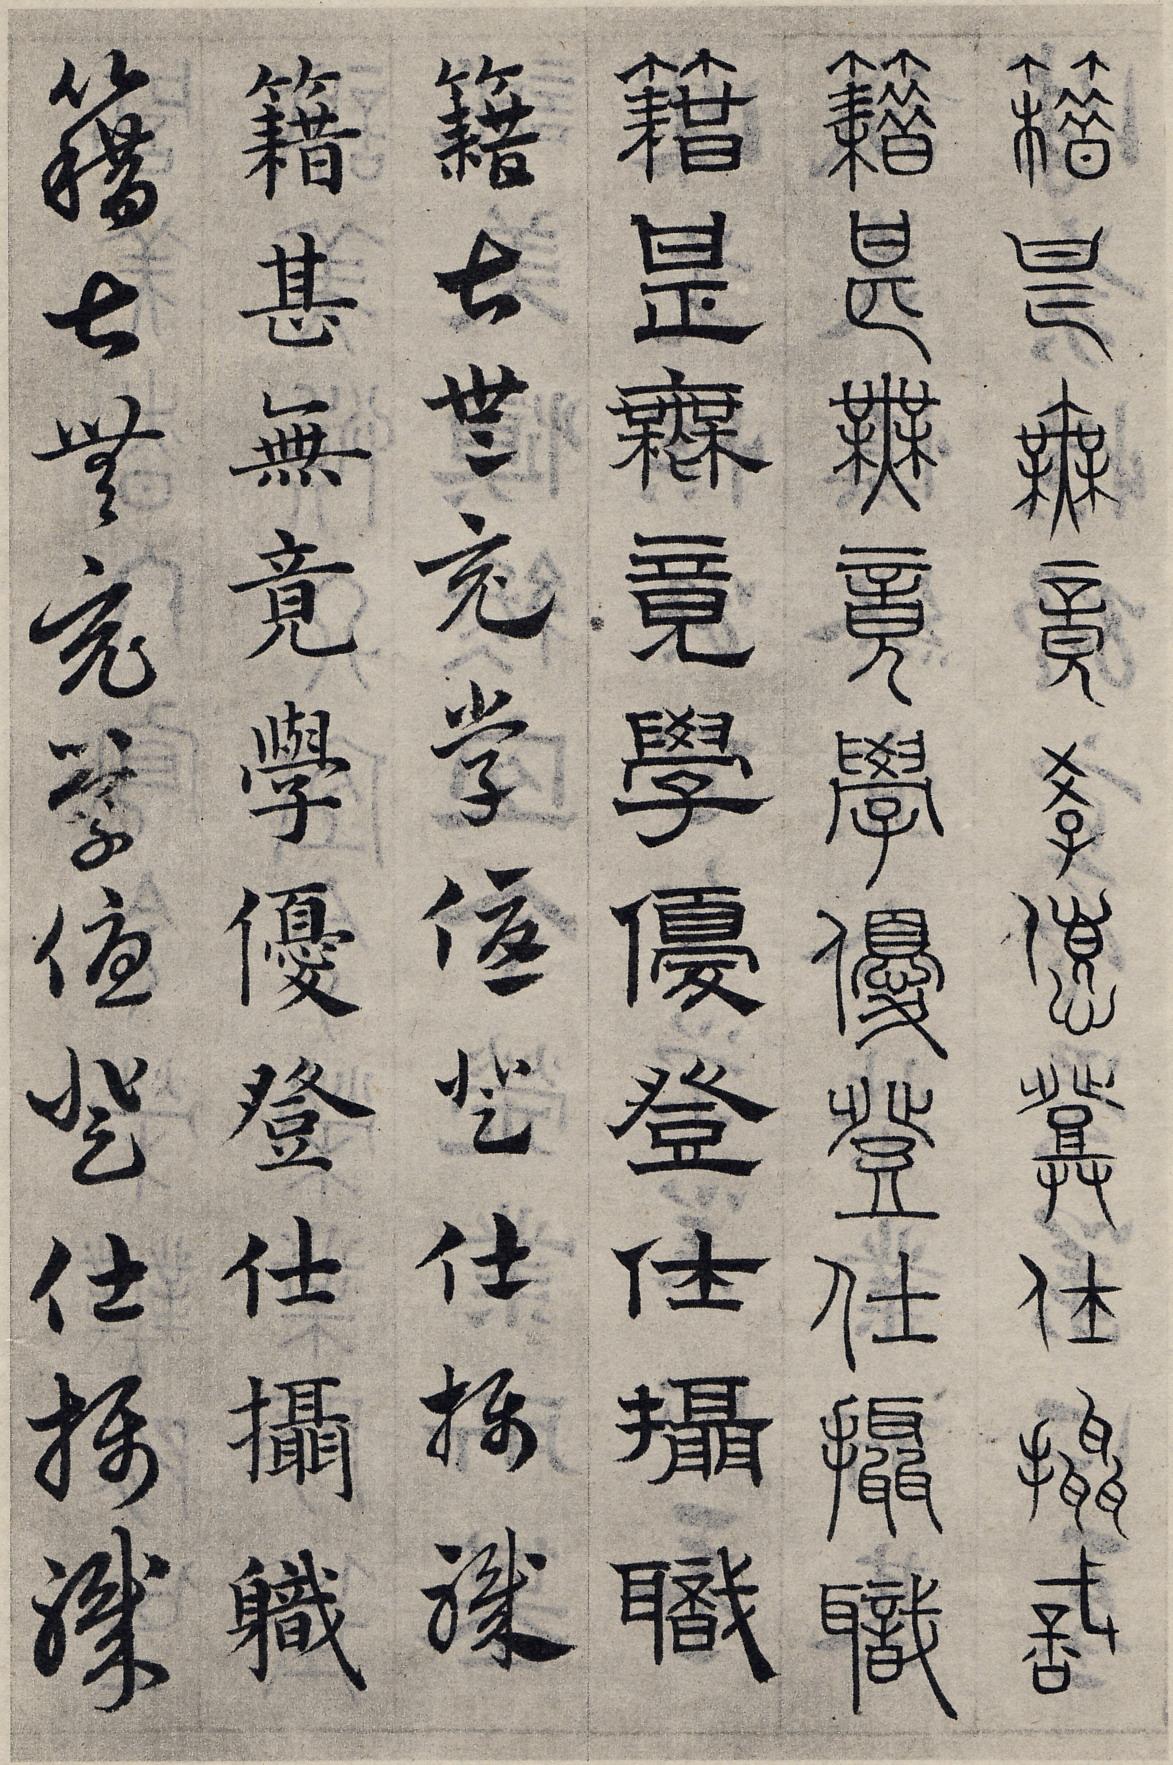 籍甚無竟學優登仕攝職
籍甚無竟學優登仕攝職
籍甚無竟學優登仕攝職
籍甚無竟學優登仕攝職
籍甚無竟學優登仕攝職
籍甚無竟學優登仕攝職